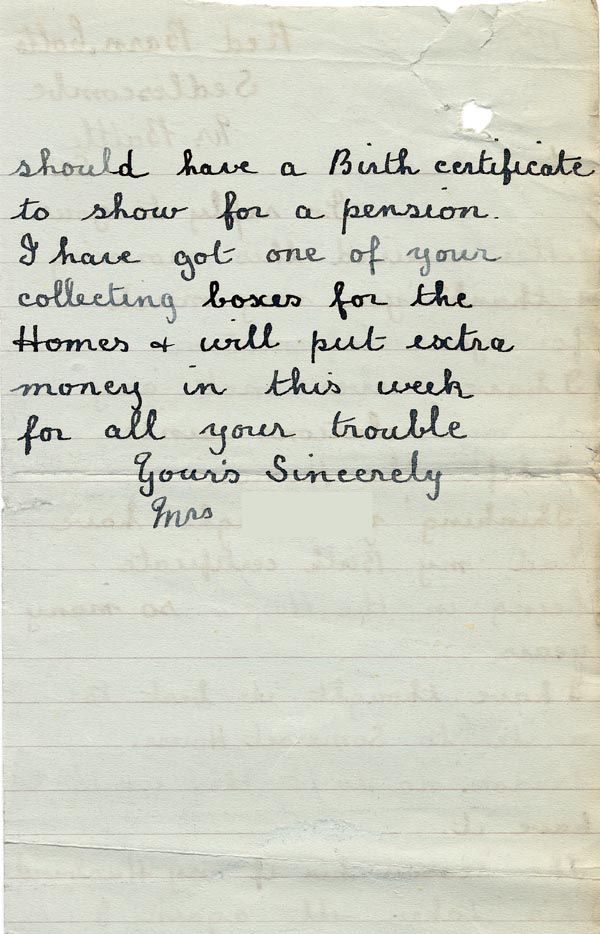 should have a Birth certificate
to show for a pension.
I have got one of your
collecting boxes for the
Homes & will put extra
money in this week
for all your trouble
Your's Sincerely
Mrs